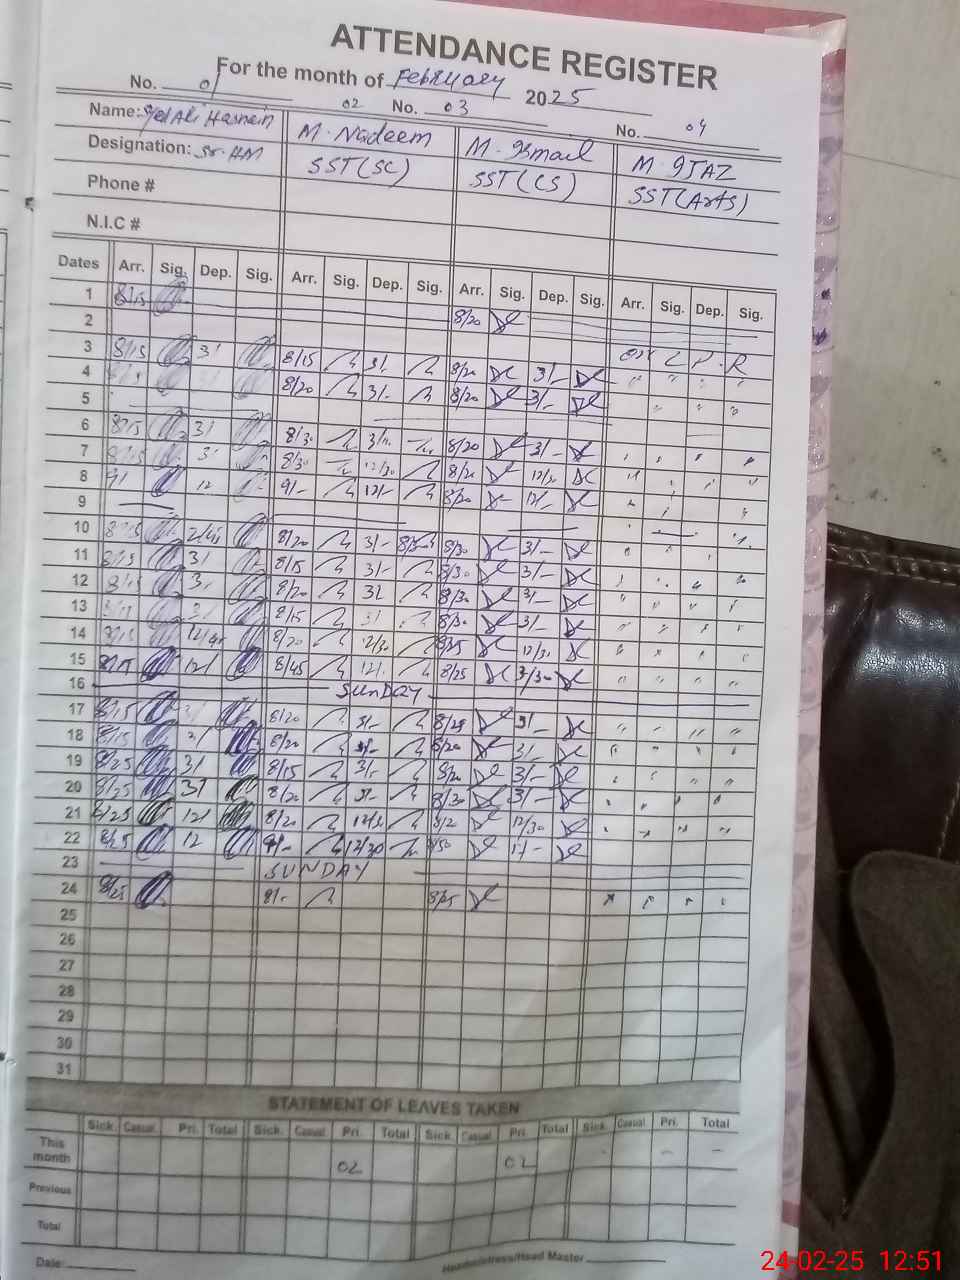 ATTENDANCE REGISTER
For the month of February 2025
No. 01 02 No. 03 No. 04
Name: Syed Ali Hasnain M. Nadeem M. Ismail M. IJAZ
Designation: Sr. HM SST(SC) SST(CS) SST(Arts)
Phone #
N.I.C #
Dates Arr. Sig. Dep. Sig. Arr. Sig. Dep. Sig. Arr. Sig. Dep. Sig. Arr. Sig. Dep. Sig.
1 8/15
2 8/20
3 8/15 3/ 8/15 3/. 8/20 3/- on L P. R
4 8/20 3/- 8/20 3/-
5
6 8/15 3/ 8/30 3/ 8/20 3/-
7 8/15 3/ 8/30 12/30 8/20 12/30
8 9/ 12 9/- 12/- 8/20 12/-
9
10 8/15 2/45 8/20 3/- 8/30 3/-
11 8/15 3/ 8/15 3/ 8/30 3/-
12 8/15 3/ 8/20 3/ 8/30 3/-
13 8/15 3/ 8/30 3/-
14 12/45 8/20 12/30 8/25 12/30
15 8/15 12/ 8/45 12/. 8/25
16 SUNDAY
17 8/15 8/20 3/- 8/25 3/-
18 8/15 3/ 8/20 3/- 8/20 3/-
19 8/25 3/ 8/15 3/- 8/20 3/-
20 8/25 3/ 8/20 3/- 8/30 3/-
21 8/25 12/ 8/20 12/30 12/30
22 8/25 12 9/- 12/30
23 SUNDAY
24 8/25 8/- 8/25
25
26
27
28
29
30
31
STATEMENT OF LEAVES TAKEN
Sick. Casual. Pri. Total Sick. Casual. Pri. Total Sick. Casual. Pri. Total Sick. Casual. Pri. Total
This month 02 02 - -
Previous
Total
Date: Headmistress/Head Master
24-02-25 12:51